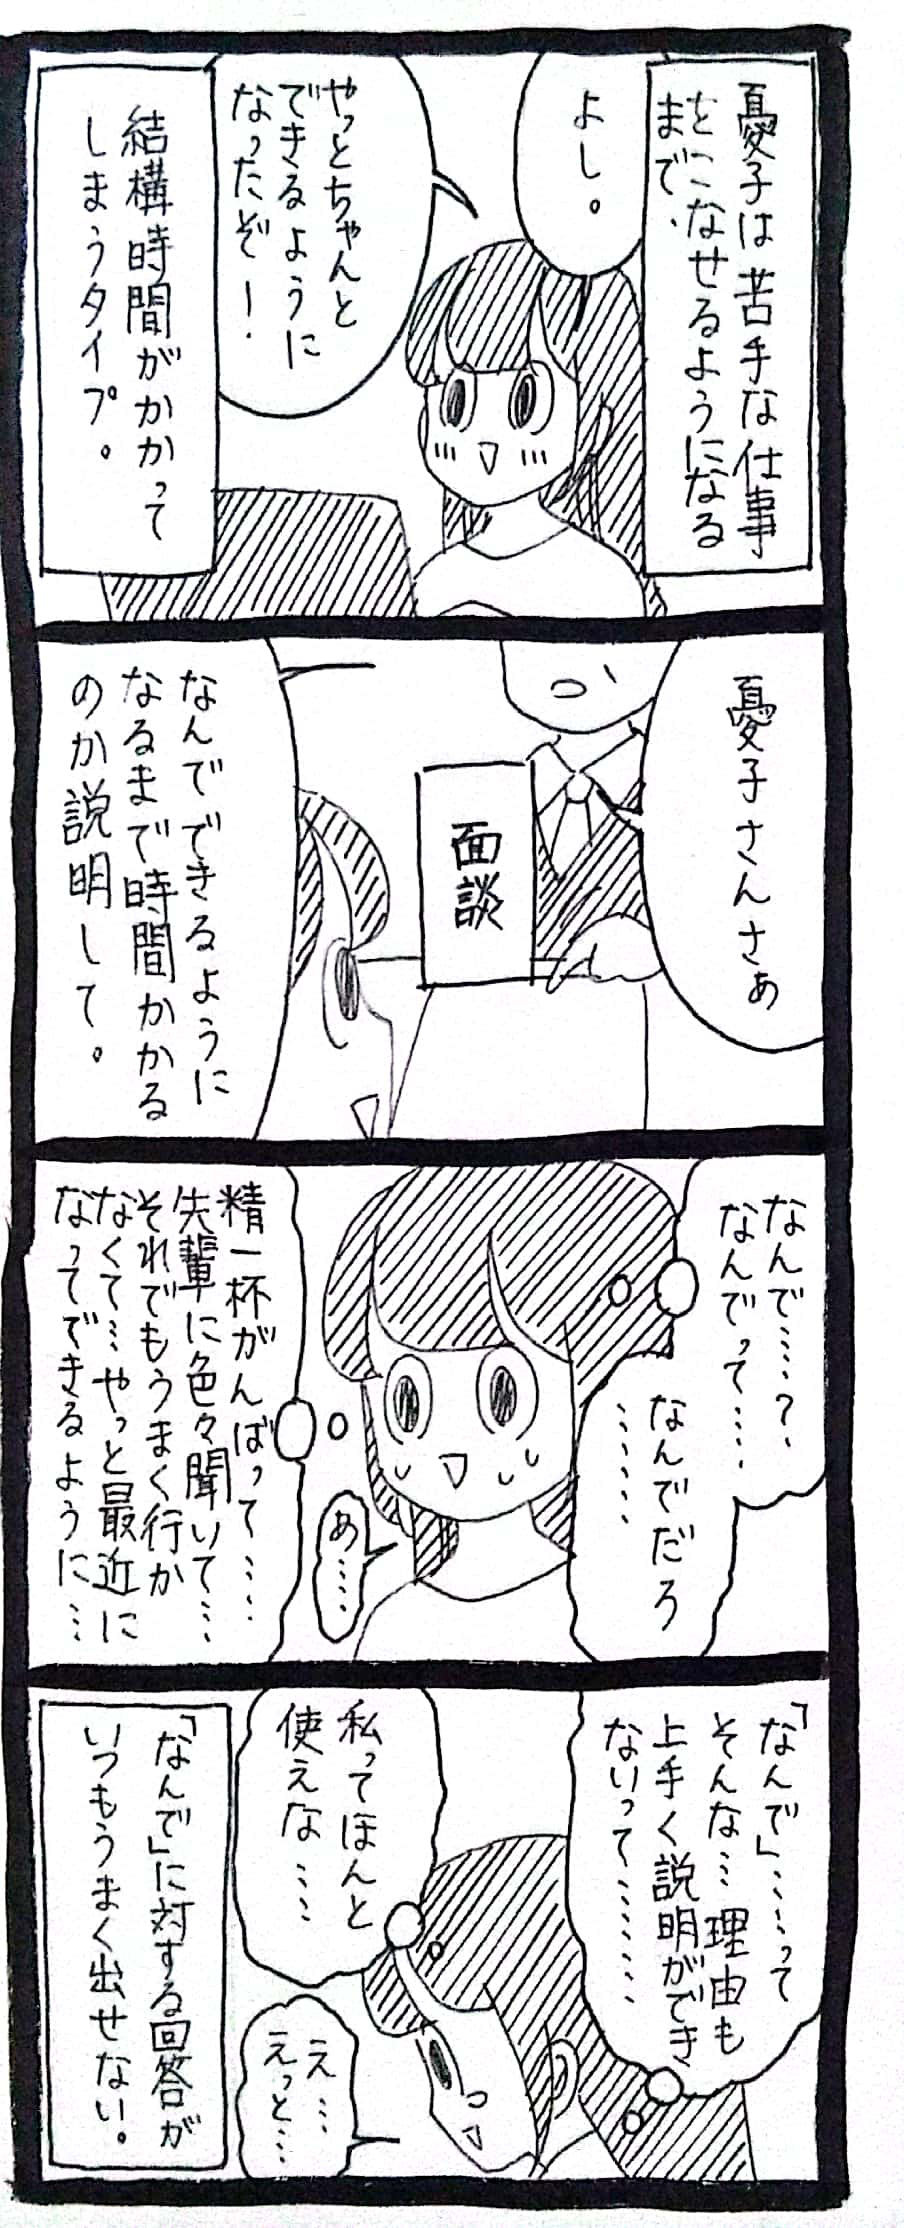 憂子は苦手な仕事
をこなせるようになる
まで、
よし。
やっとちゃんと
できるように
なったぞ!
結構時間がかかって
しまうタイプ。
憂子さんさぁ
面談
なんでできるように
なるまで時間かかる
のか説明して。
なんで……?
なんでって……
なんでだろ
………
あ……
精一杯がんばって……
先輩に色々聞いて…
それでもうまく行か
なくて…やっと最近に
なってできるように…
「なんで」……って
そんな…理由も
上手く説明ができ
ないって………
私ってほんと
使えな……
え…
えっと…
「なんで」に対する回答が
いつもうまく出せない。